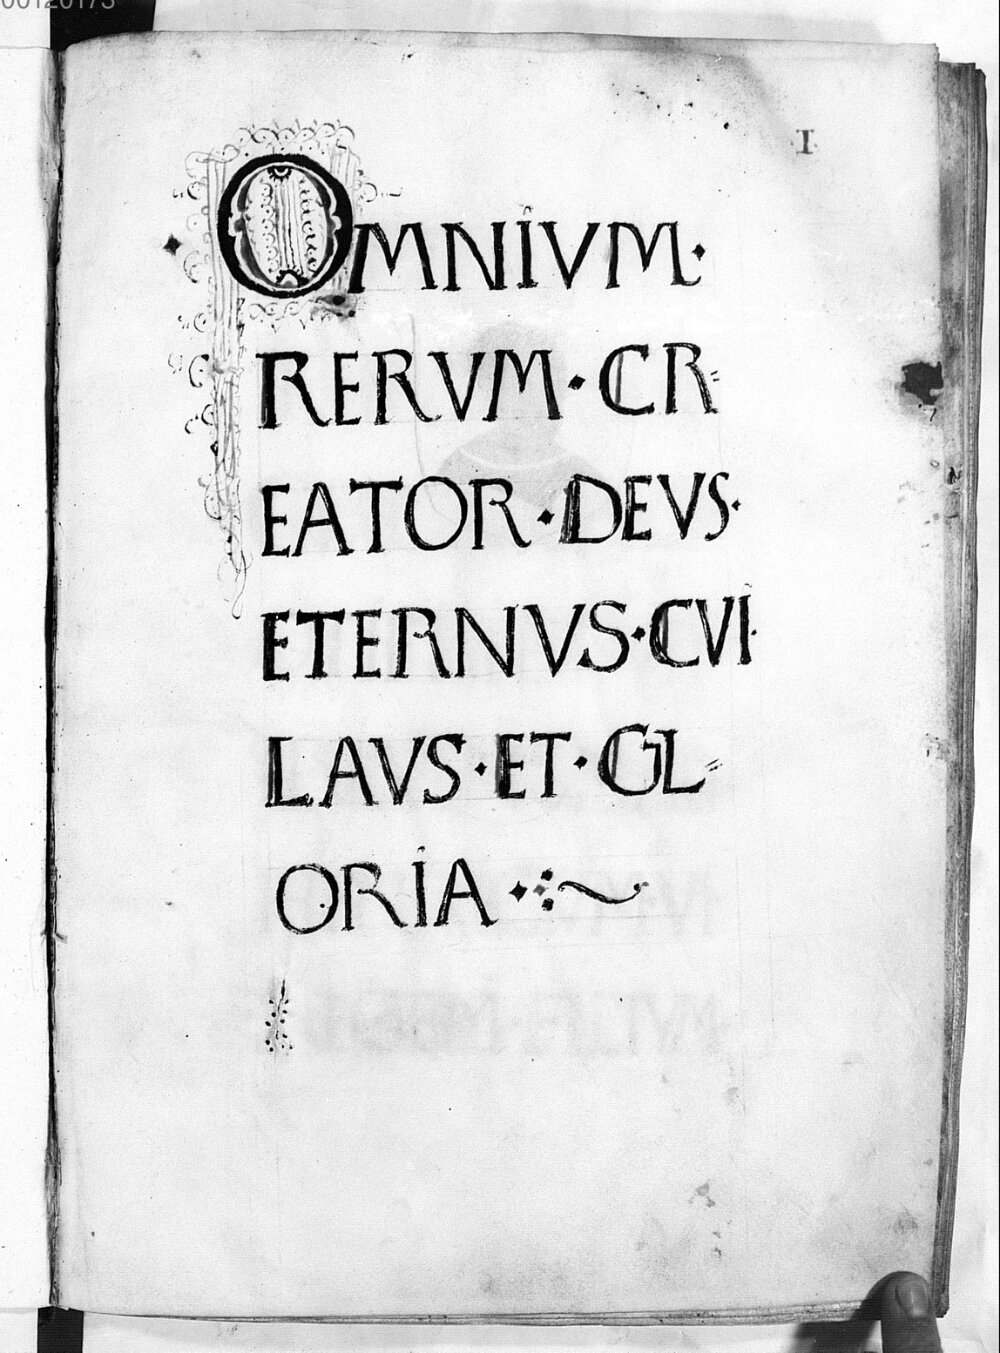 00120173
·I·
OMNIVM·
RERVM·CR=
EATOR·DEVS·
ETERNVS·CVI·
LAVS·ET·GL=
ORIA